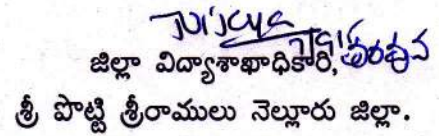 జిల్లా విద్యాశాఖాధికారి,
శ్రీ పొట్టి శ్రీరాములు నెల్లూరు జిల్లా.